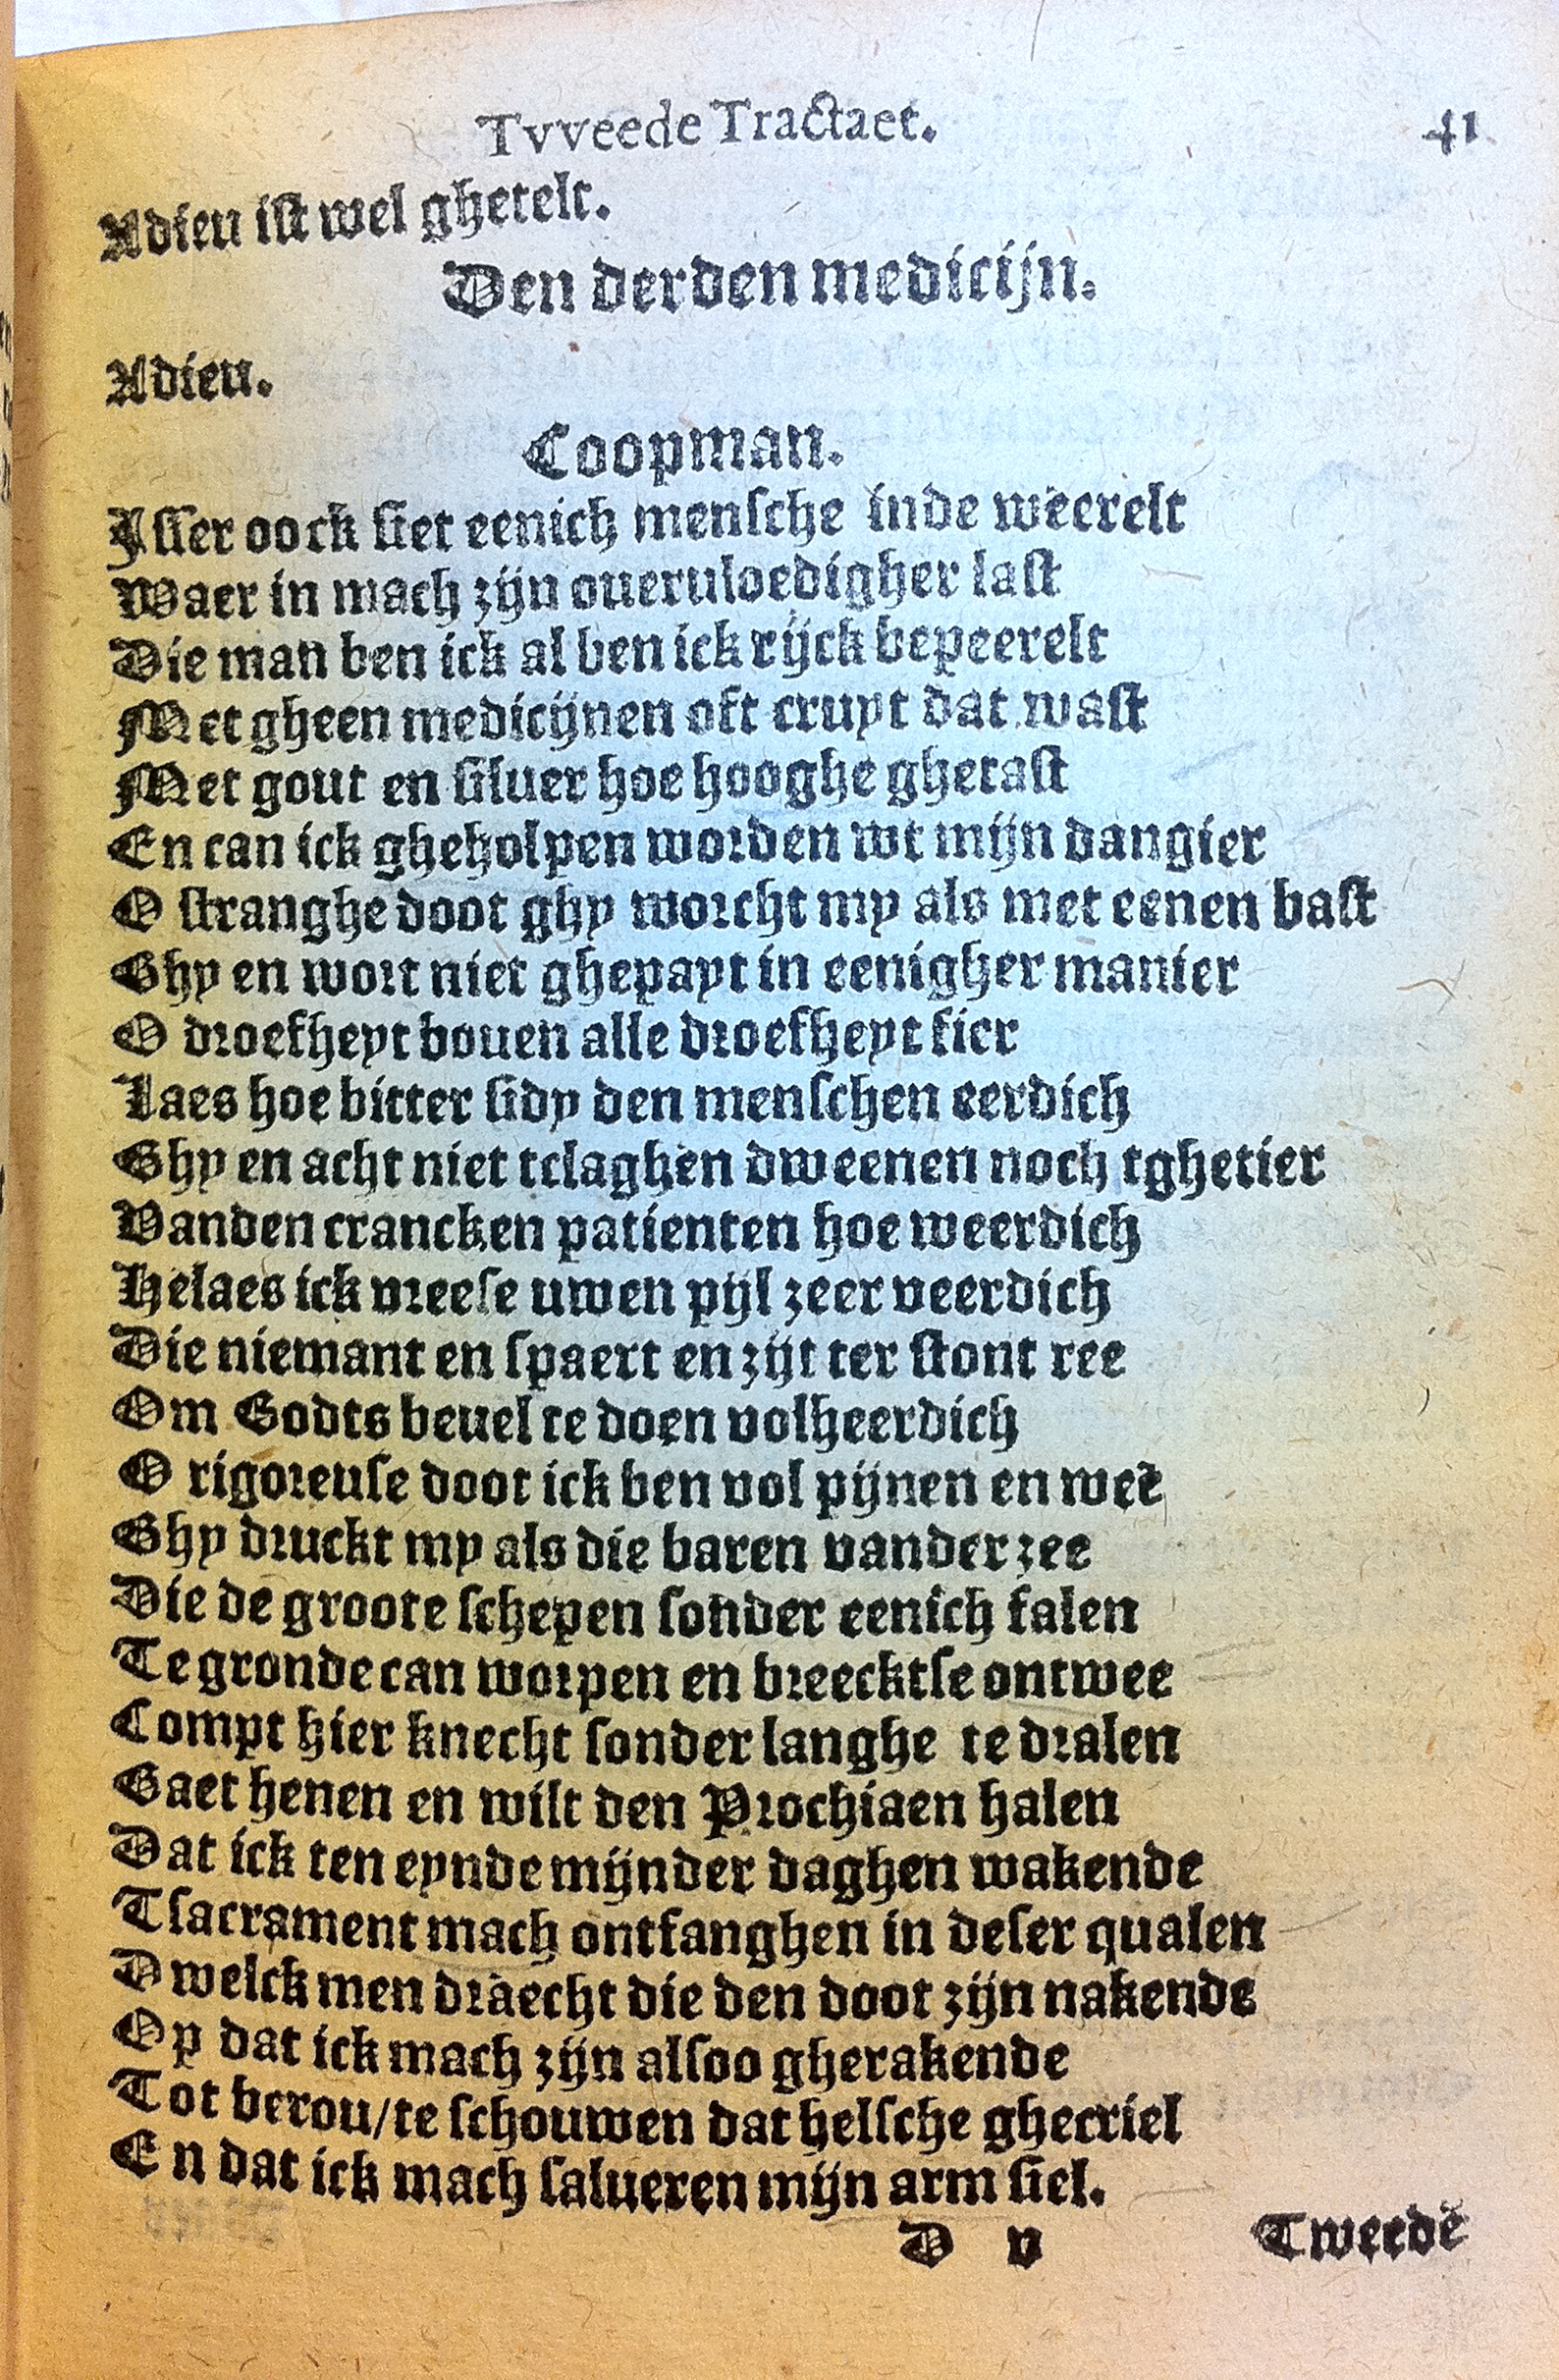 Tvveede Tractaet. 41
Adieu ist wel ghetelt.
Den derden medicijn.
Adieu.
Coopman.
Isser oock siet eenich mensche inde weerelt
Waer in mach zijn oueruloedigher last
Die man ben ick al ben ick rijck bepeerelt
Met gheen medicijnen oft cruyt dat wast
Met gout en siluer hoe hooghe ghetast
En can ick gheholpen worden wt mijn dangier
O stranghe doot ghy worcht my als met eenen bast
Ghy en wort niet ghepayt in eenigher manier
O droefheyt bouen alle droefheyt fier
Laes hoe bitter sidy den menschen eerdich
Ghy en acht niet tclaghen dweenen noch tghetier
Vanden crancken patienten hoe weerdich
Helaes ick vreese uwen pijl zeer veerdich
Die niemant en spaert en zijt ter stont ree
Om Godts beuel te doen volheerdich
O rigoreuse doot ick ben vol pijnen en wee
Ghy druckt my als die baren vander zee
Die de groote schepen sonder eenich falen
Te gronde can worpen en breecktse ontwee
Compt hier knecht sonder langhe te dralen
Gaet henen en wilt den Prochiaen halen
Dat ick ten eynde mijnder daghen wakende
Tsacrament mach ontfanghen in deser qualen
Dwelck men draecht die den doot zijn nakende
Op dat ick mach zijn alsoo gherakende
Tot berou/te schouwen dat helsche ghecriel
En dat ick mach salueren mijn arm siel.
D v Tweede